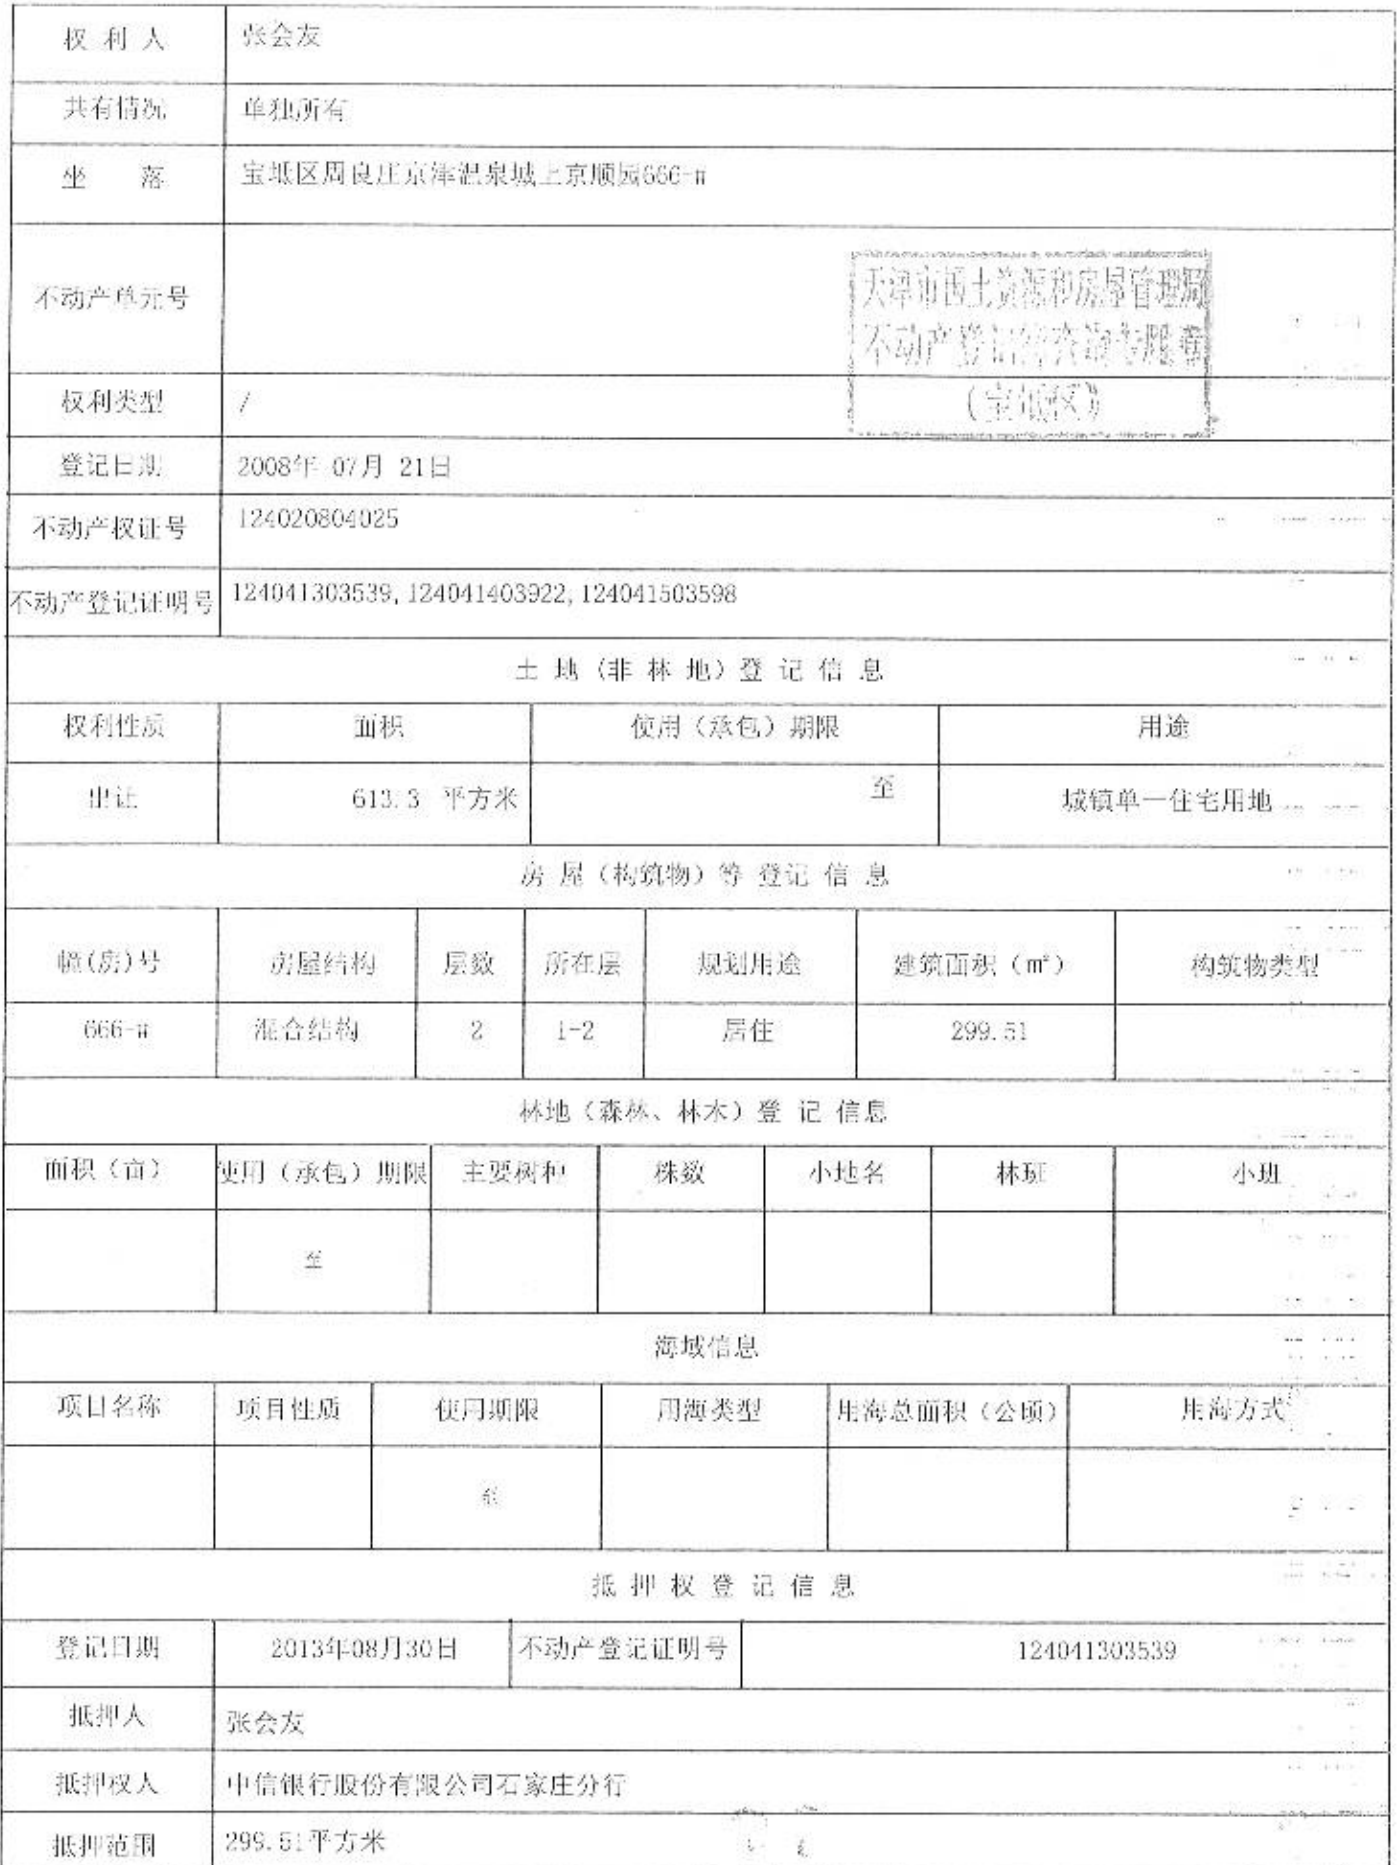 权 利 人 张会友
共有情况 单独所有
坐 落 宝坻区周良庄京津温泉城上京顺园666-#
不动产单元号
天津市国土资源和房屋管理局
不动产登记 查询专用章
(宝坻区)
权利类型 /
登记日期 2008年 07月 21日
不动产权证号 124020804025
不动产登记证明号 124041303539, 124041403922, 124041503598
土 地 (非 林 地) 登 记 信 息
权利性质 面积 使用（承包）期限 用途
出让 613.3 平方米 至 城镇单一住宅用地
房 屋（构筑物）等 登记 信 息
幢(房)号 房屋结构 层数 所在层 规划用途 建筑面积（㎡） 构筑物类型
666-# 混合结构 2 1-2 居住 299.51
林地（森林、林木）登 记 信息
面积（亩） 使用（承包）期限 主要树种 株数 小地名 林班 小班
至
海域信息
项目名称 项目性质 使用期限 用海类型 用海总面积（公顷） 用海方式
至
抵 押 权 登 记 信 息
登记日期 2013年08月30日 不动产登记证明号 124041303539
抵押人 张会友
抵押权人 中信银行股份有限公司石家庄分行
抵押范围 299.51平方米